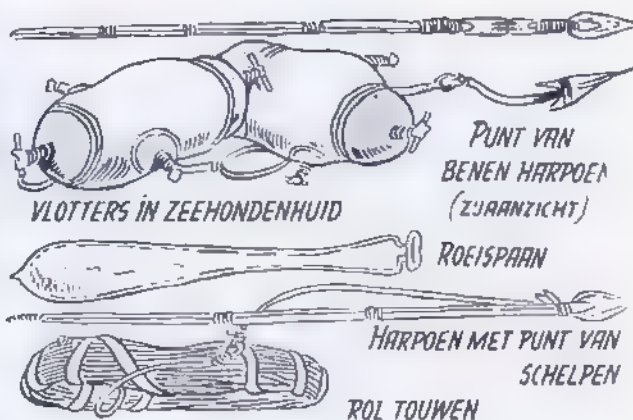 PUNT VAN
BENEN HARPOEN
(ZIJAANZICHT)
VLOTTERS IN ZEEHONDENHUID
ROEISPAAN
HARPOEN MET PUNT VAN
SCHELPEN
ROL TOUWEN